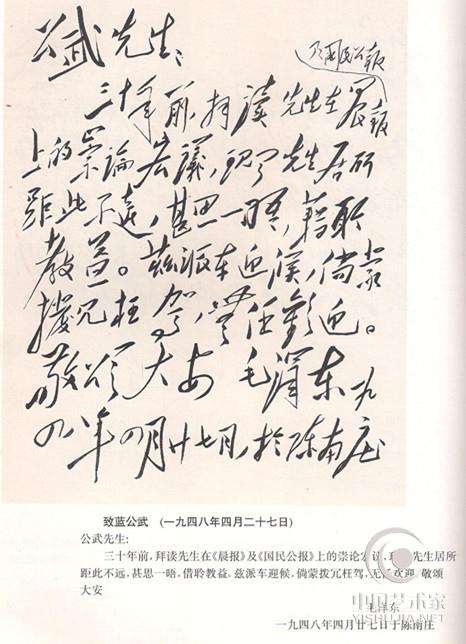 公武先生:
及國民公報
三十年前,拜读先生在晨報
上的崇論宏議,现闻先生居所
距此不遠,甚思一晤,藉聆
教益。茲派車迎候,倘蒙
撥冗枉驾,無任歡迎。
敬颂 大安 毛澤東 一九
四八年四月廿七日,於陈南庄
致蓝公武 (一九四八年四月二十七日)
公武先生:
三十年前,拜读先生在《晨报》及《国民公报》上的崇论宏 先生居所
距此不远,甚思一晤,借聆教益,兹派车迎候,倘蒙拨冗枉驾, 欢迎 敬颂
大安
毛泽东
一九四八年四月廿七日于陈南庄
中国艺术家
YISHUJIA.COM